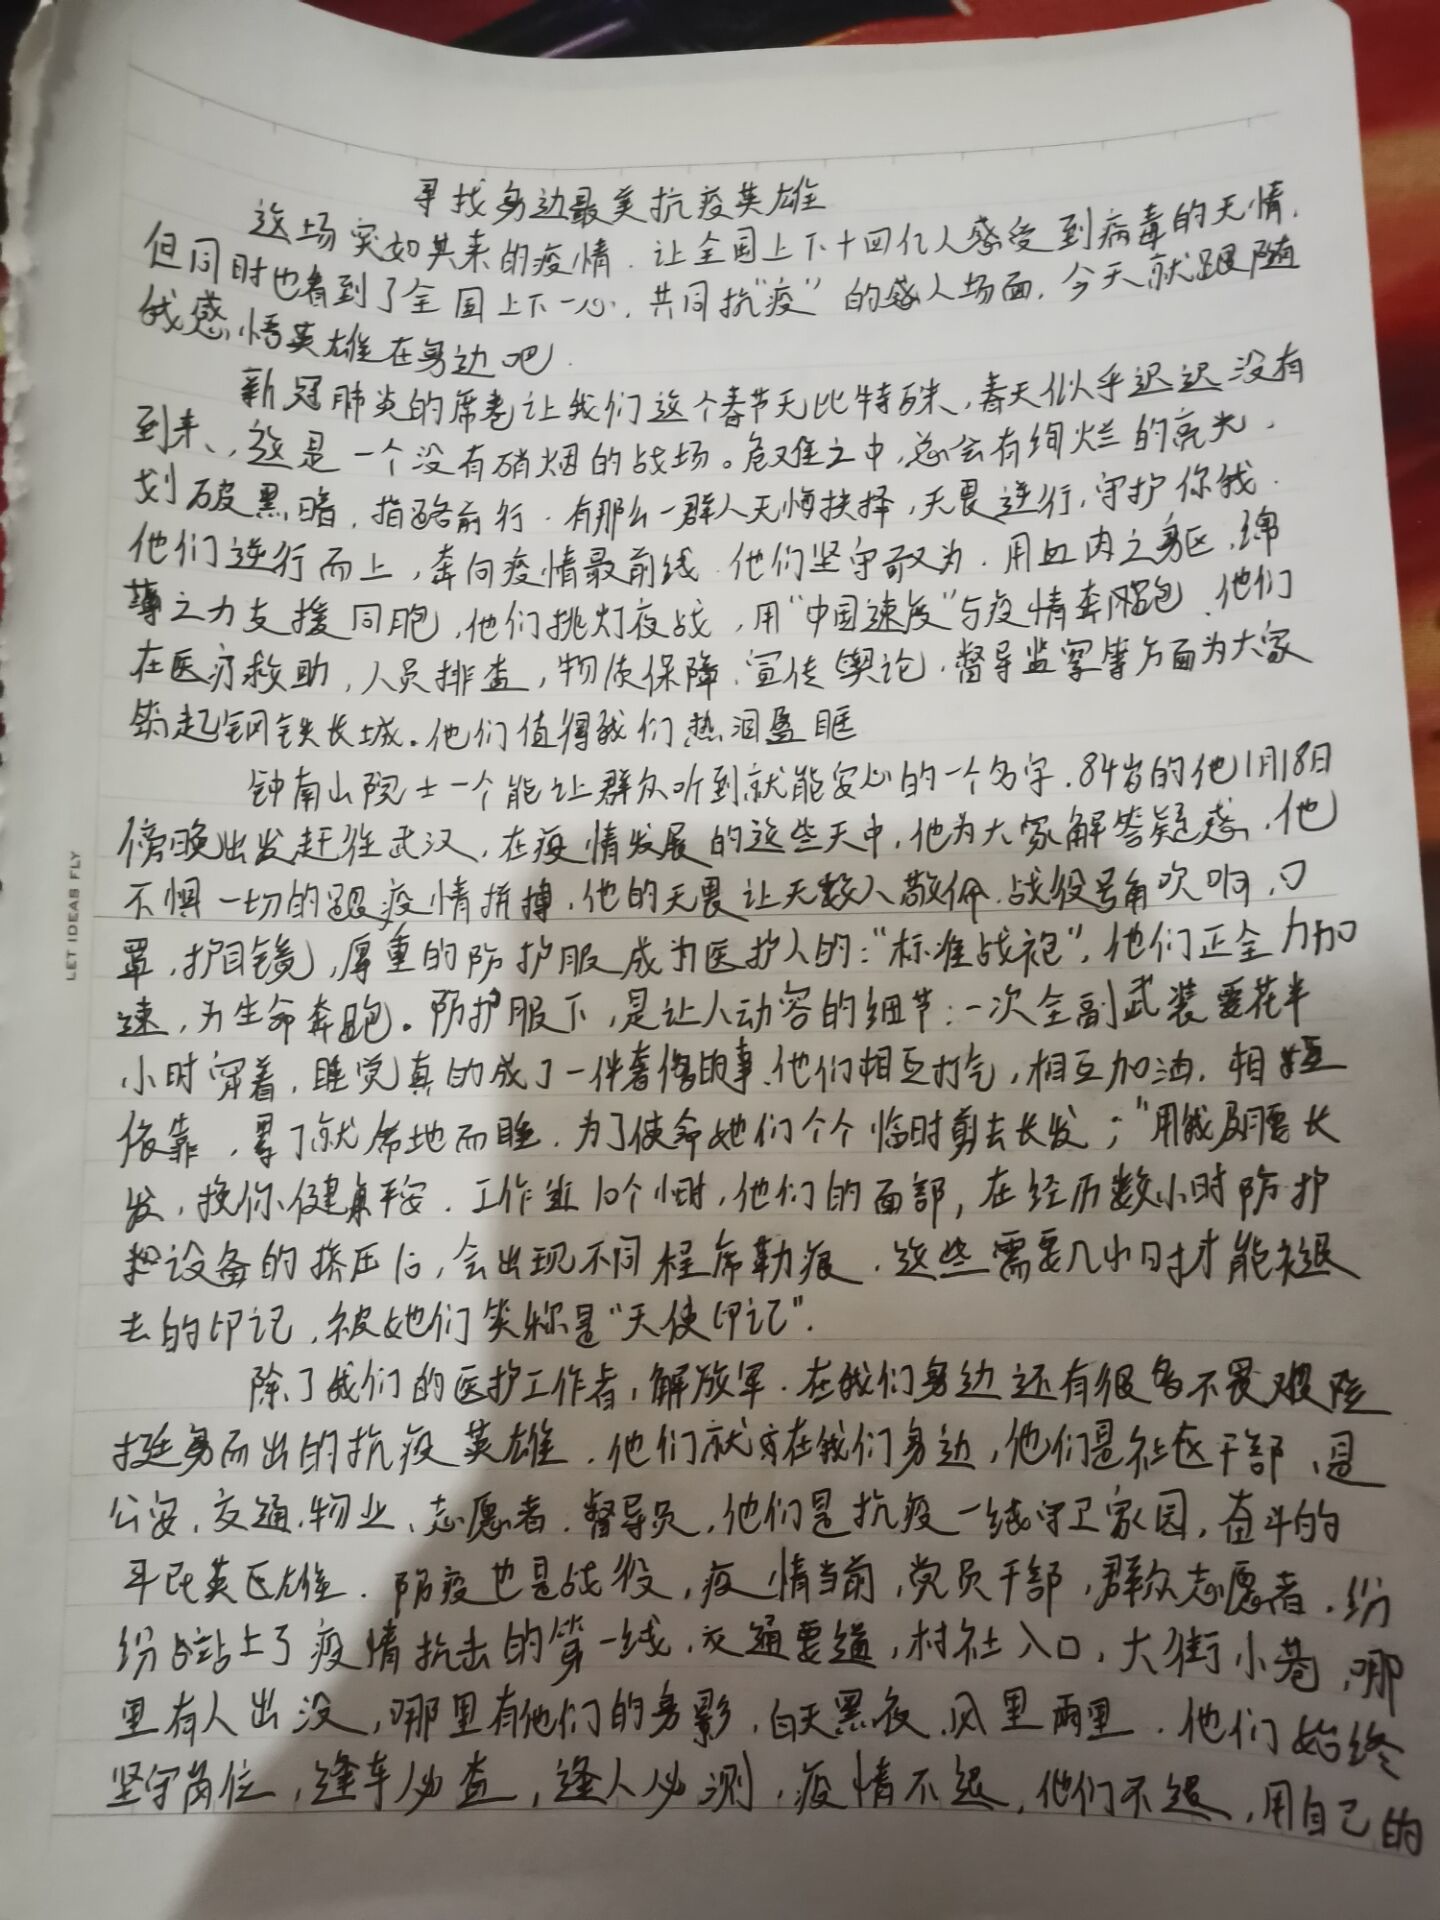 寻找身边最美抗疫英雄
这场突如其来的疫情.让全国上下十四亿人感受到病毒的无情.
但同时也看到了全国上下一心.共同抗"疫"的感人场面.今天就跟随
我感悟英雄在身边吧.
新冠肺炎的席卷让我们这个春节无比特殊,春天似乎迟迟没有
到来、这是一个没有硝烟的战场。危难之中,总会有绚烂的亮光.
划破黑暗,指路前行.有那么一群人无悔抉择,无畏逆行,守护你我.
他们逆行而上,奔向疫情最前线.他们坚守敢为.用血肉之躯、绵
薄之力支援同胞,他们挑灯夜战,用"中国速度"与疫情奔跑.他们
在医疗救助,人员排查,物资保障.宣传舆论,督导监察等方面为大家
筑起钢铁长城。他们值得我们热泪盈眶
钟南山院士一个能让群众听到就能安心的一个名字.84岁的他1月18日
傍晚出发赶往武汉,在疫情发展的这些天中,他为大家解答疑惑,他
不惧一切的跟疫情拼搏.他的无畏让无数人敬佩.战役号角吹响,口
罩,护目镜,厚重的防护服成为医护人的:"标准战袍",他们正全力加
速,为生命奔跑。防护服下,是让人动容的细节:一次全副武装要花半
小时穿着,睡觉真的成了一件奢侈的事.他们相互打气,相互加油.相互
依靠,累了就席地而睡.为了使命她们个个临时剪去长发;"用我及腰长
发,换你健康平安.工作近10个小时,他们的面部,在经历数小时防护
设备的挤压后,会出现不同程席勒痕.这些需要几小时才能褪
去的印记,被她们笑称是"天使印记".
除了我们的医护工作者,解放军.在我们身边还有很多不畏艰险
挺身而出的抗疫英雄.他们就在我们身边,他们是社区干部、是
公安.交通.物业、志愿者.督导员,他们是抗疫一线守卫家园,奋斗的
平民英雄.防疫也是战役,疫情当前,党员干部,群众志愿者.纷
纷站上了疫情抗击的第一线.交通要道,村社入口,大街小巷,哪
里有人出没,哪里有他们的身影,白天黑夜.风里雨里.他们始终
坚守岗位,逢车必查,逢人必测,疫情不退,他们不退,用自己的
LET IDEAS FLY